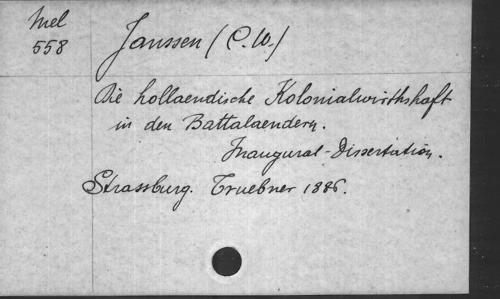 Mel
558
Janssen (C. W.)
Die hollaendische Kolonialwirthshaft
in den Battalaendern.
Inaugural-Dissertation.
Strassburg. Truebner 1886.